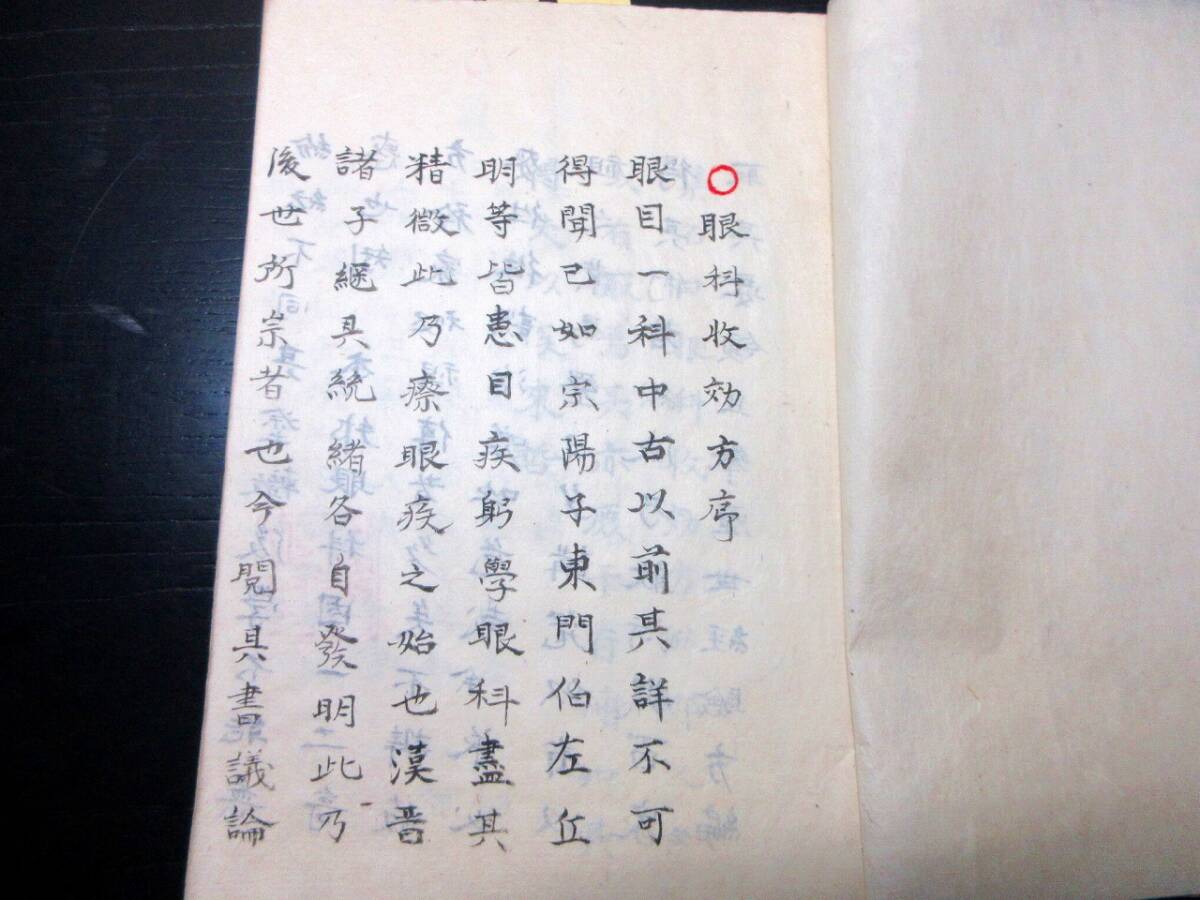 ○眼科收効方序
眼目一科中古以前其詳不可
得聞已如宗陽子東門伯左丘
明等皆患目疾躬學眼科盡其
精微此乃療眼疾之始也漢晋
諸子継其統緒各自發明此乃
後世所宗者也今閲其書議論